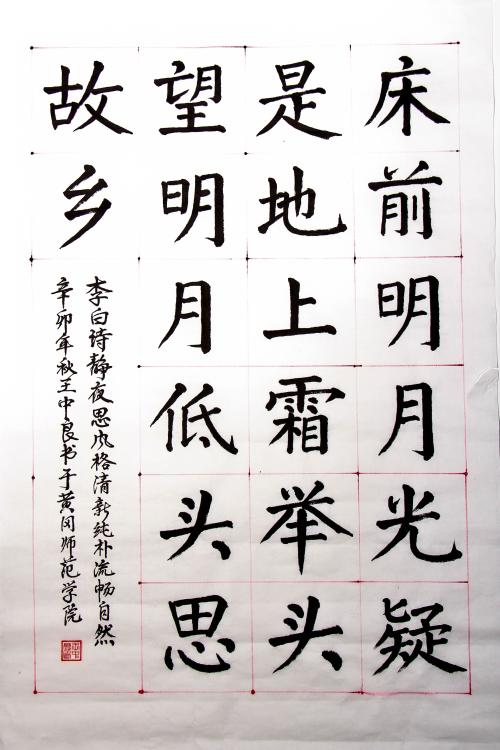 床前明月光疑
是地上霜举头
望明月低头思
故乡
李白诗静夜思风格清新纯朴流畅自然
辛卯年秋王中良书于黄冈师范学院